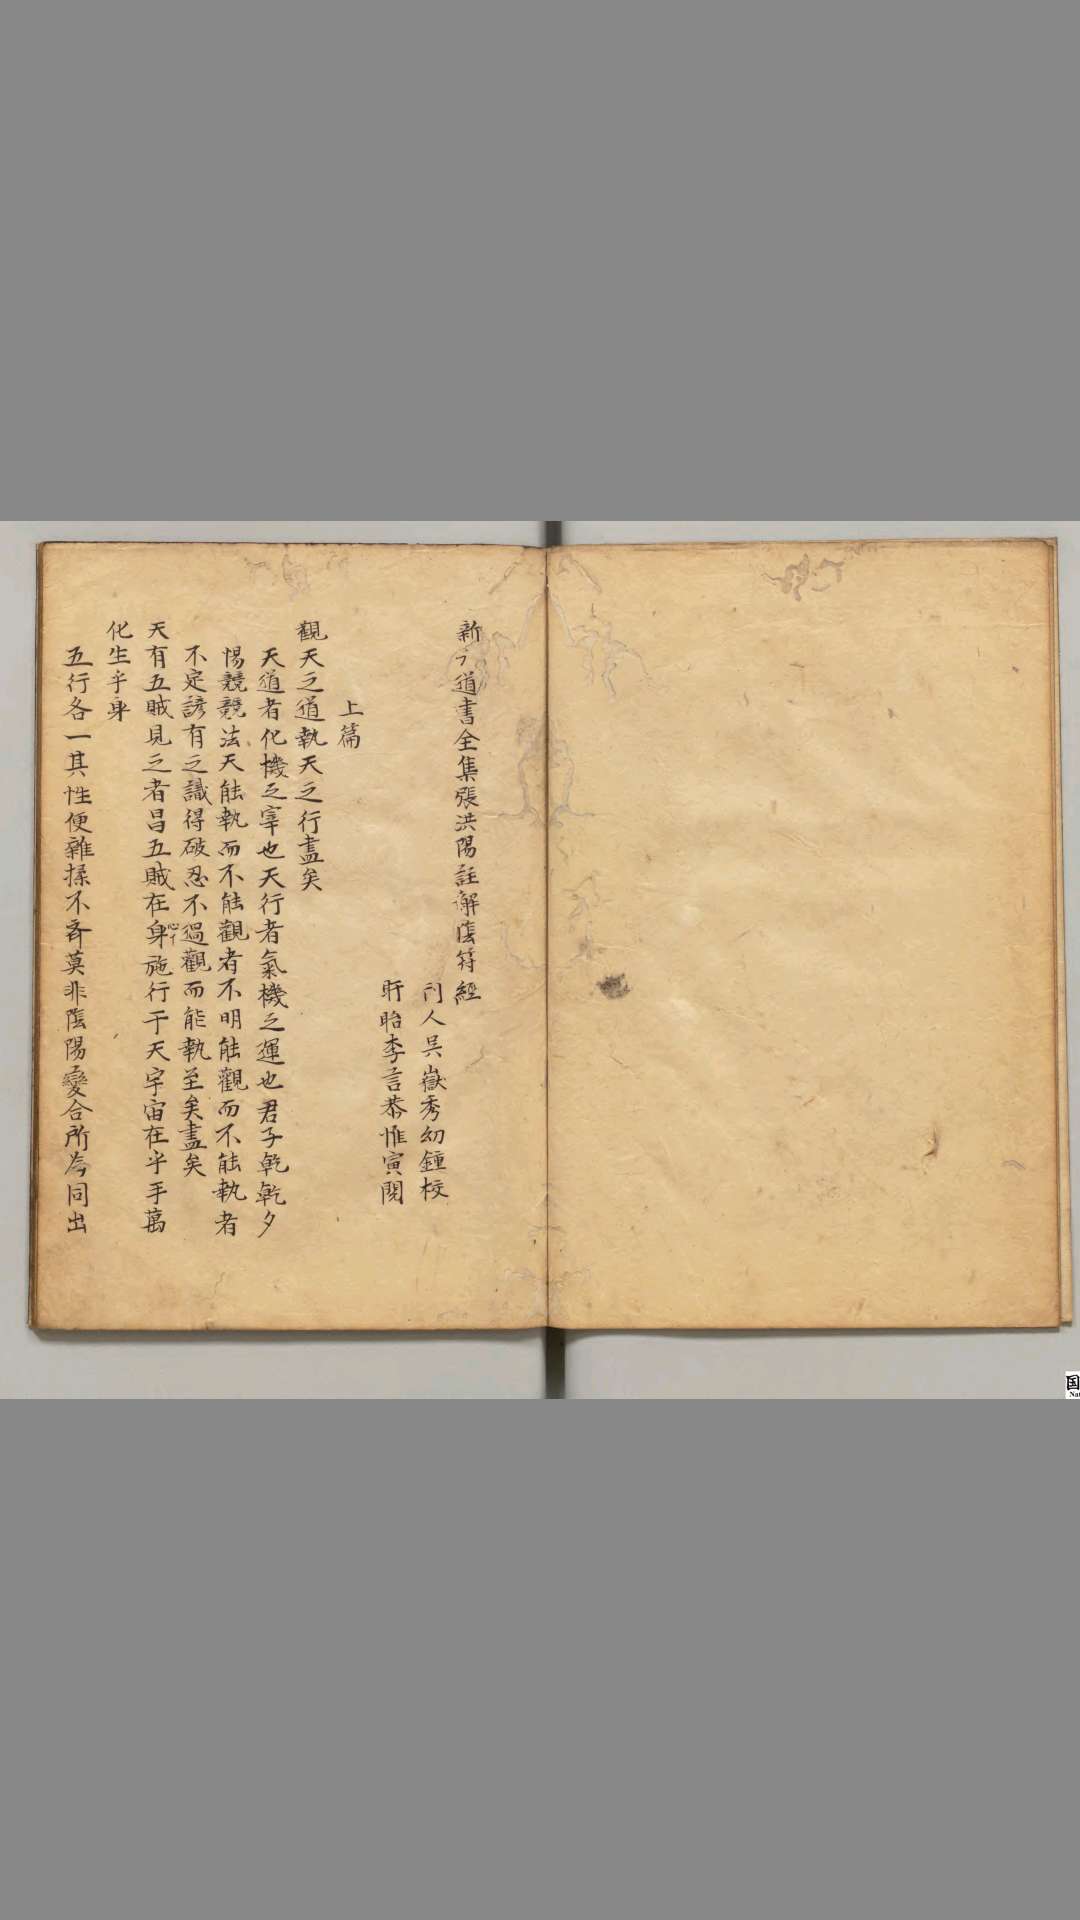 新刊道書全集張洪陽註解陰符經
刊人吴嶽秀幼鍾校
盱眙李言恭惟寅閱
上篇
觀天之道執天之行盡矣
天道者化機之宰也天行者氣機之運也君子乾乾夕
惕競競法天能執而不能觀者不明能觀而不能執者
不定諺有之識得破忍不過觀而能執至矣盡矣
天有五賊見之者昌五賊在身心下施行于天宇宙在乎手萬
化生乎身
五行各一其性便雜揉不齊莫非陰陽變合所為同出
国
Nat